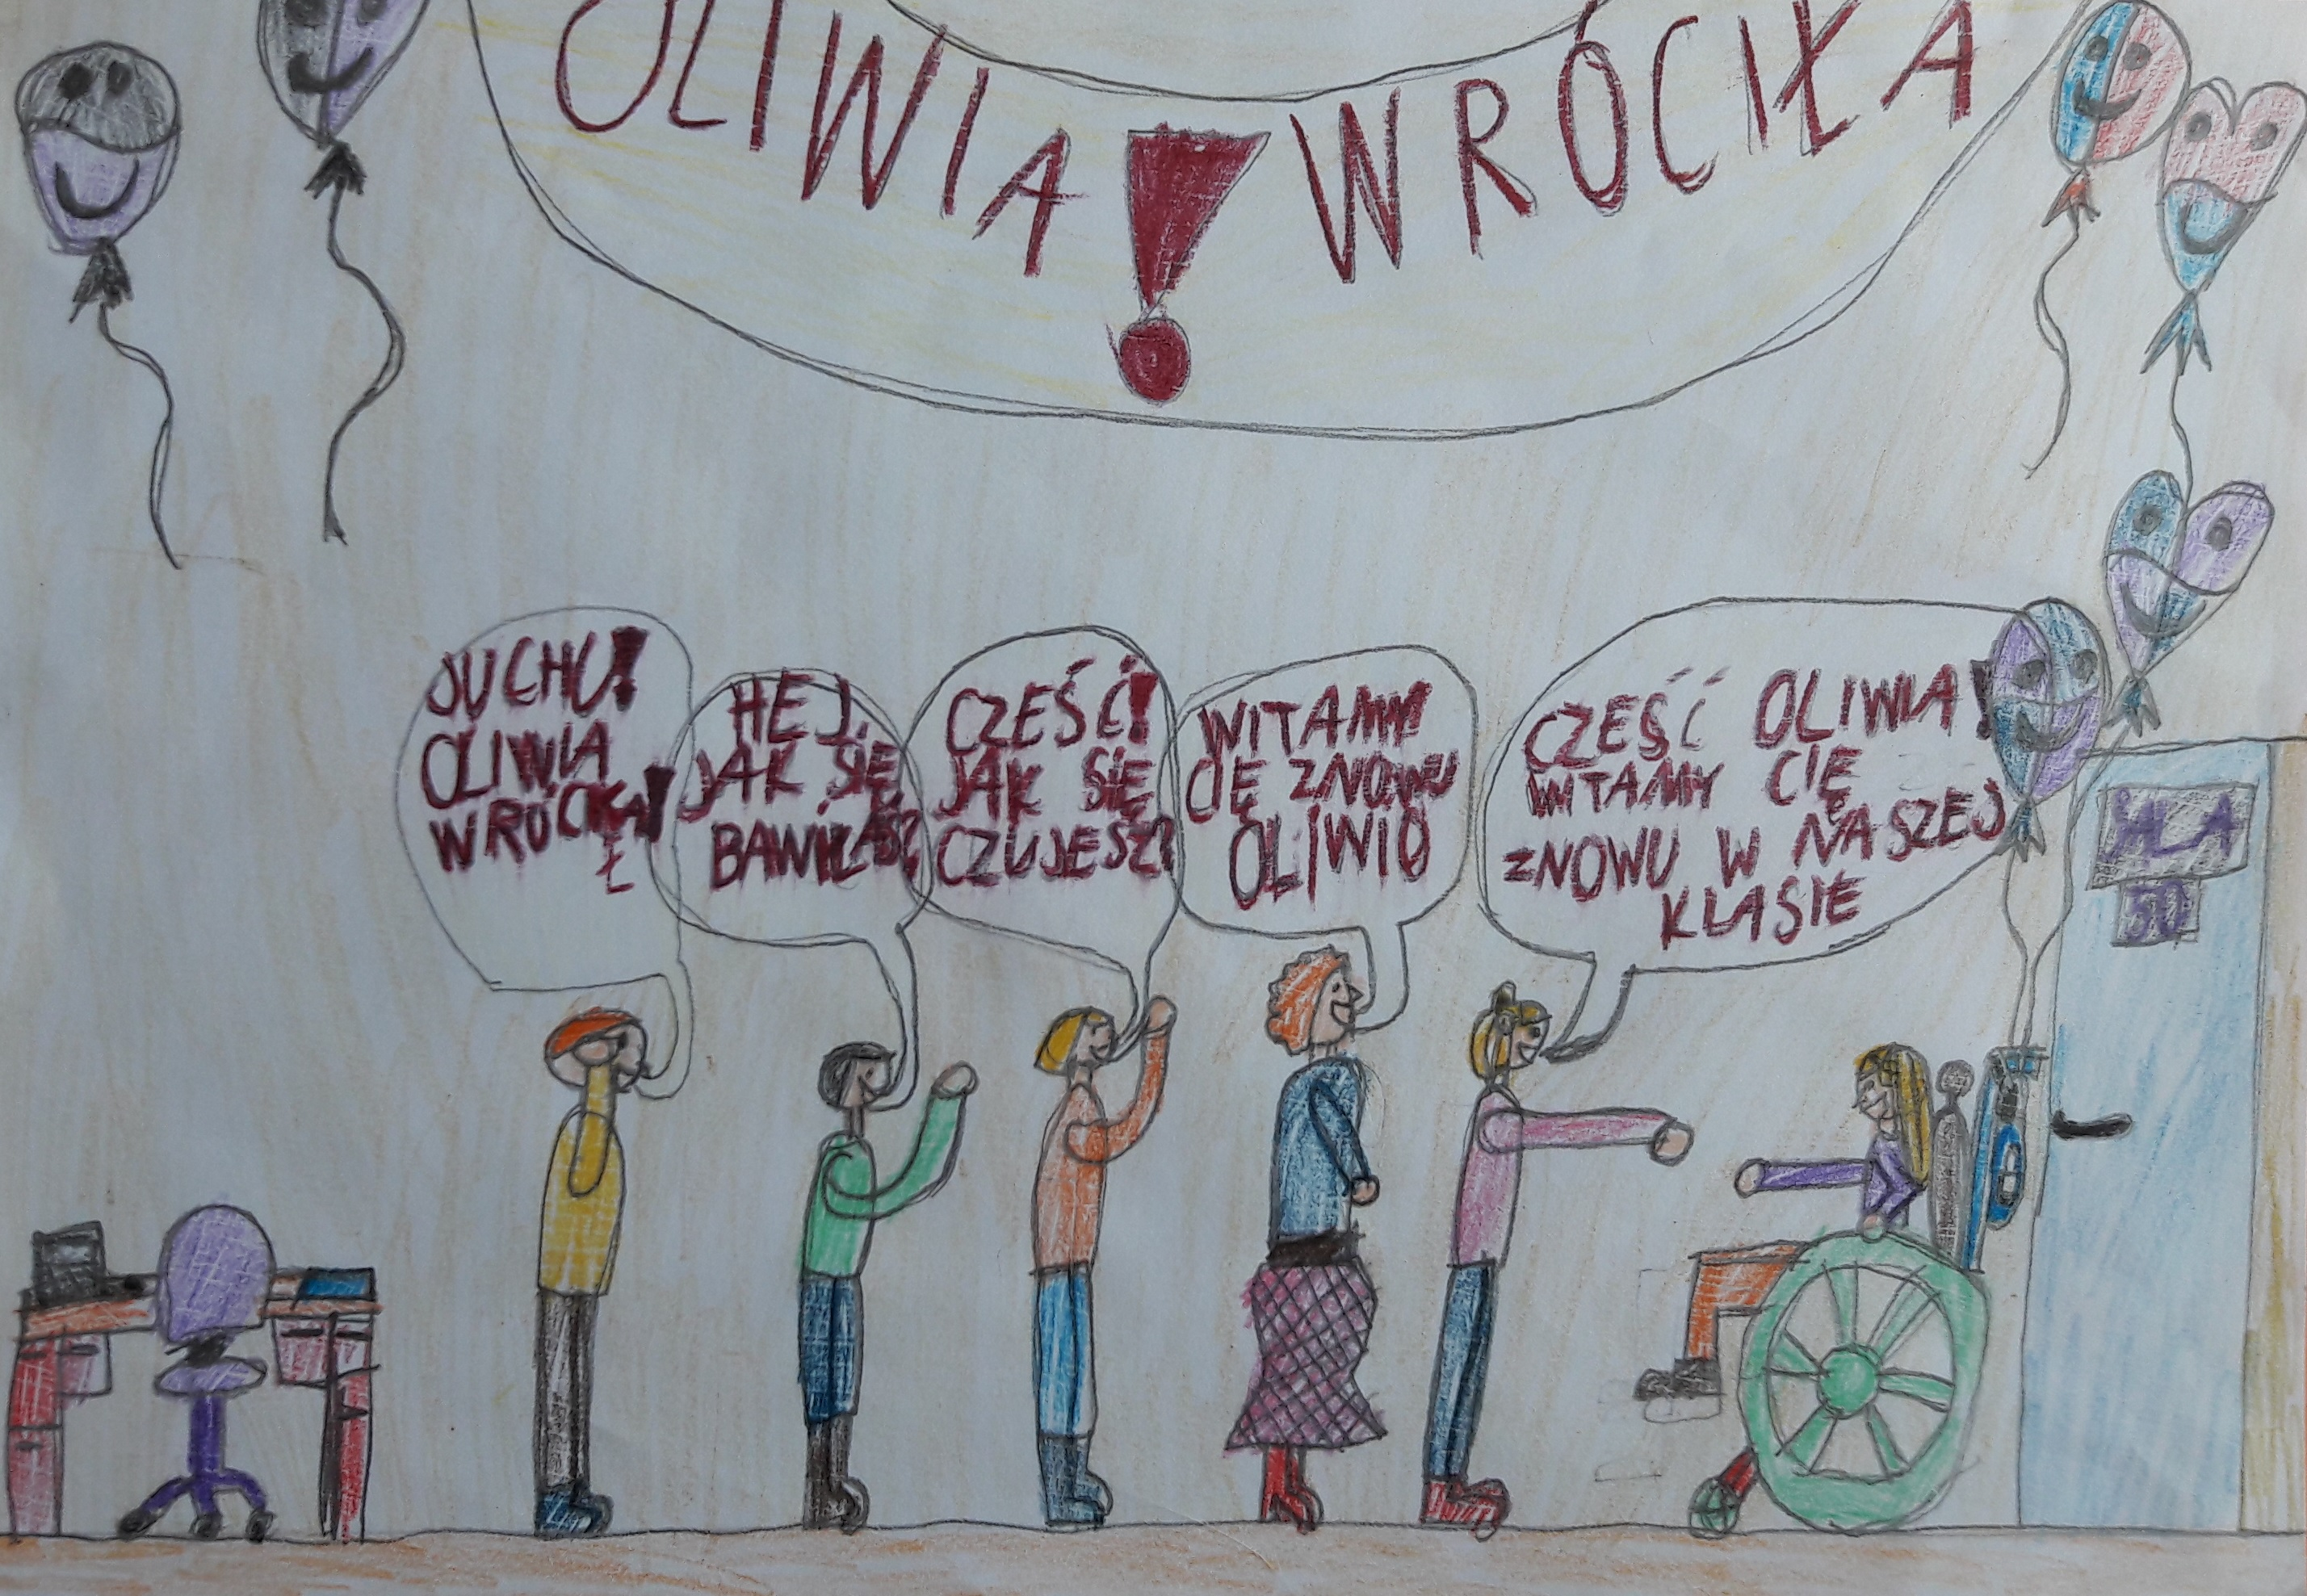 OLIWIA ! WRÓCIŁA
JUCHU!
OLIWIA
WRÓCIŁA!
Ł
HEJ,
JAK SIĘ
BAWIŁAŚ?
CZEŚĆ!
JAK SIĘ
CZUJESZ?
WITAMY
CIĘ ZNOWU
OLIWIO
CZEŚĆ OLIWIA!
WITAMY CIĘ
ZNOWU W NASZEJ
KLASIE
SALA
50